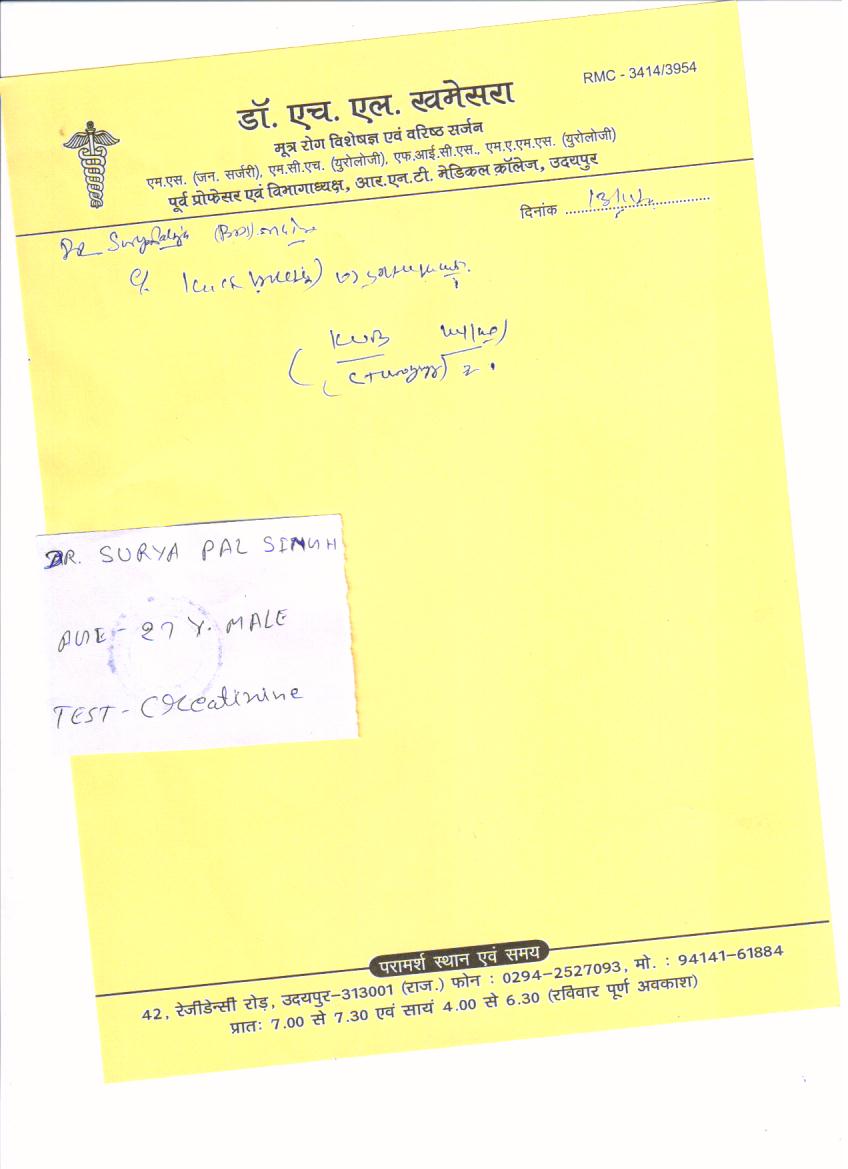 RMC - 3414/3954
डॉ. एच. एल. खमेसरा
मूत्र रोग विशेषज्ञ एवं वरिष्ठ सर्जन
एम.एस. (जन. सर्जरी), एम.सी.एच. (युरोलोजी), एफ.आई.सी.एस., एम.ए.एम.एस. (युरोलोजी)
पूर्व प्रोफेसर एवं विभागाध्यक्ष, आर.एन.टी. मेडिकल कॉलेज, उदयपुर
दिनांक
KUB
DR. SURYA PAL SINGH
AGE - 27 Y. MALE
TEST - Creatinine
परामर्श स्थान एवं समय
42, रेजीडेन्सी रोड़, उदयपुर-313001 (राज.) फोन : 0294-2527093, मो. : 94141-61884
प्रातः 7.00 से 7.30 एवं सायं 4.00 से 6.30 (रविवार पूर्ण अवकाश)